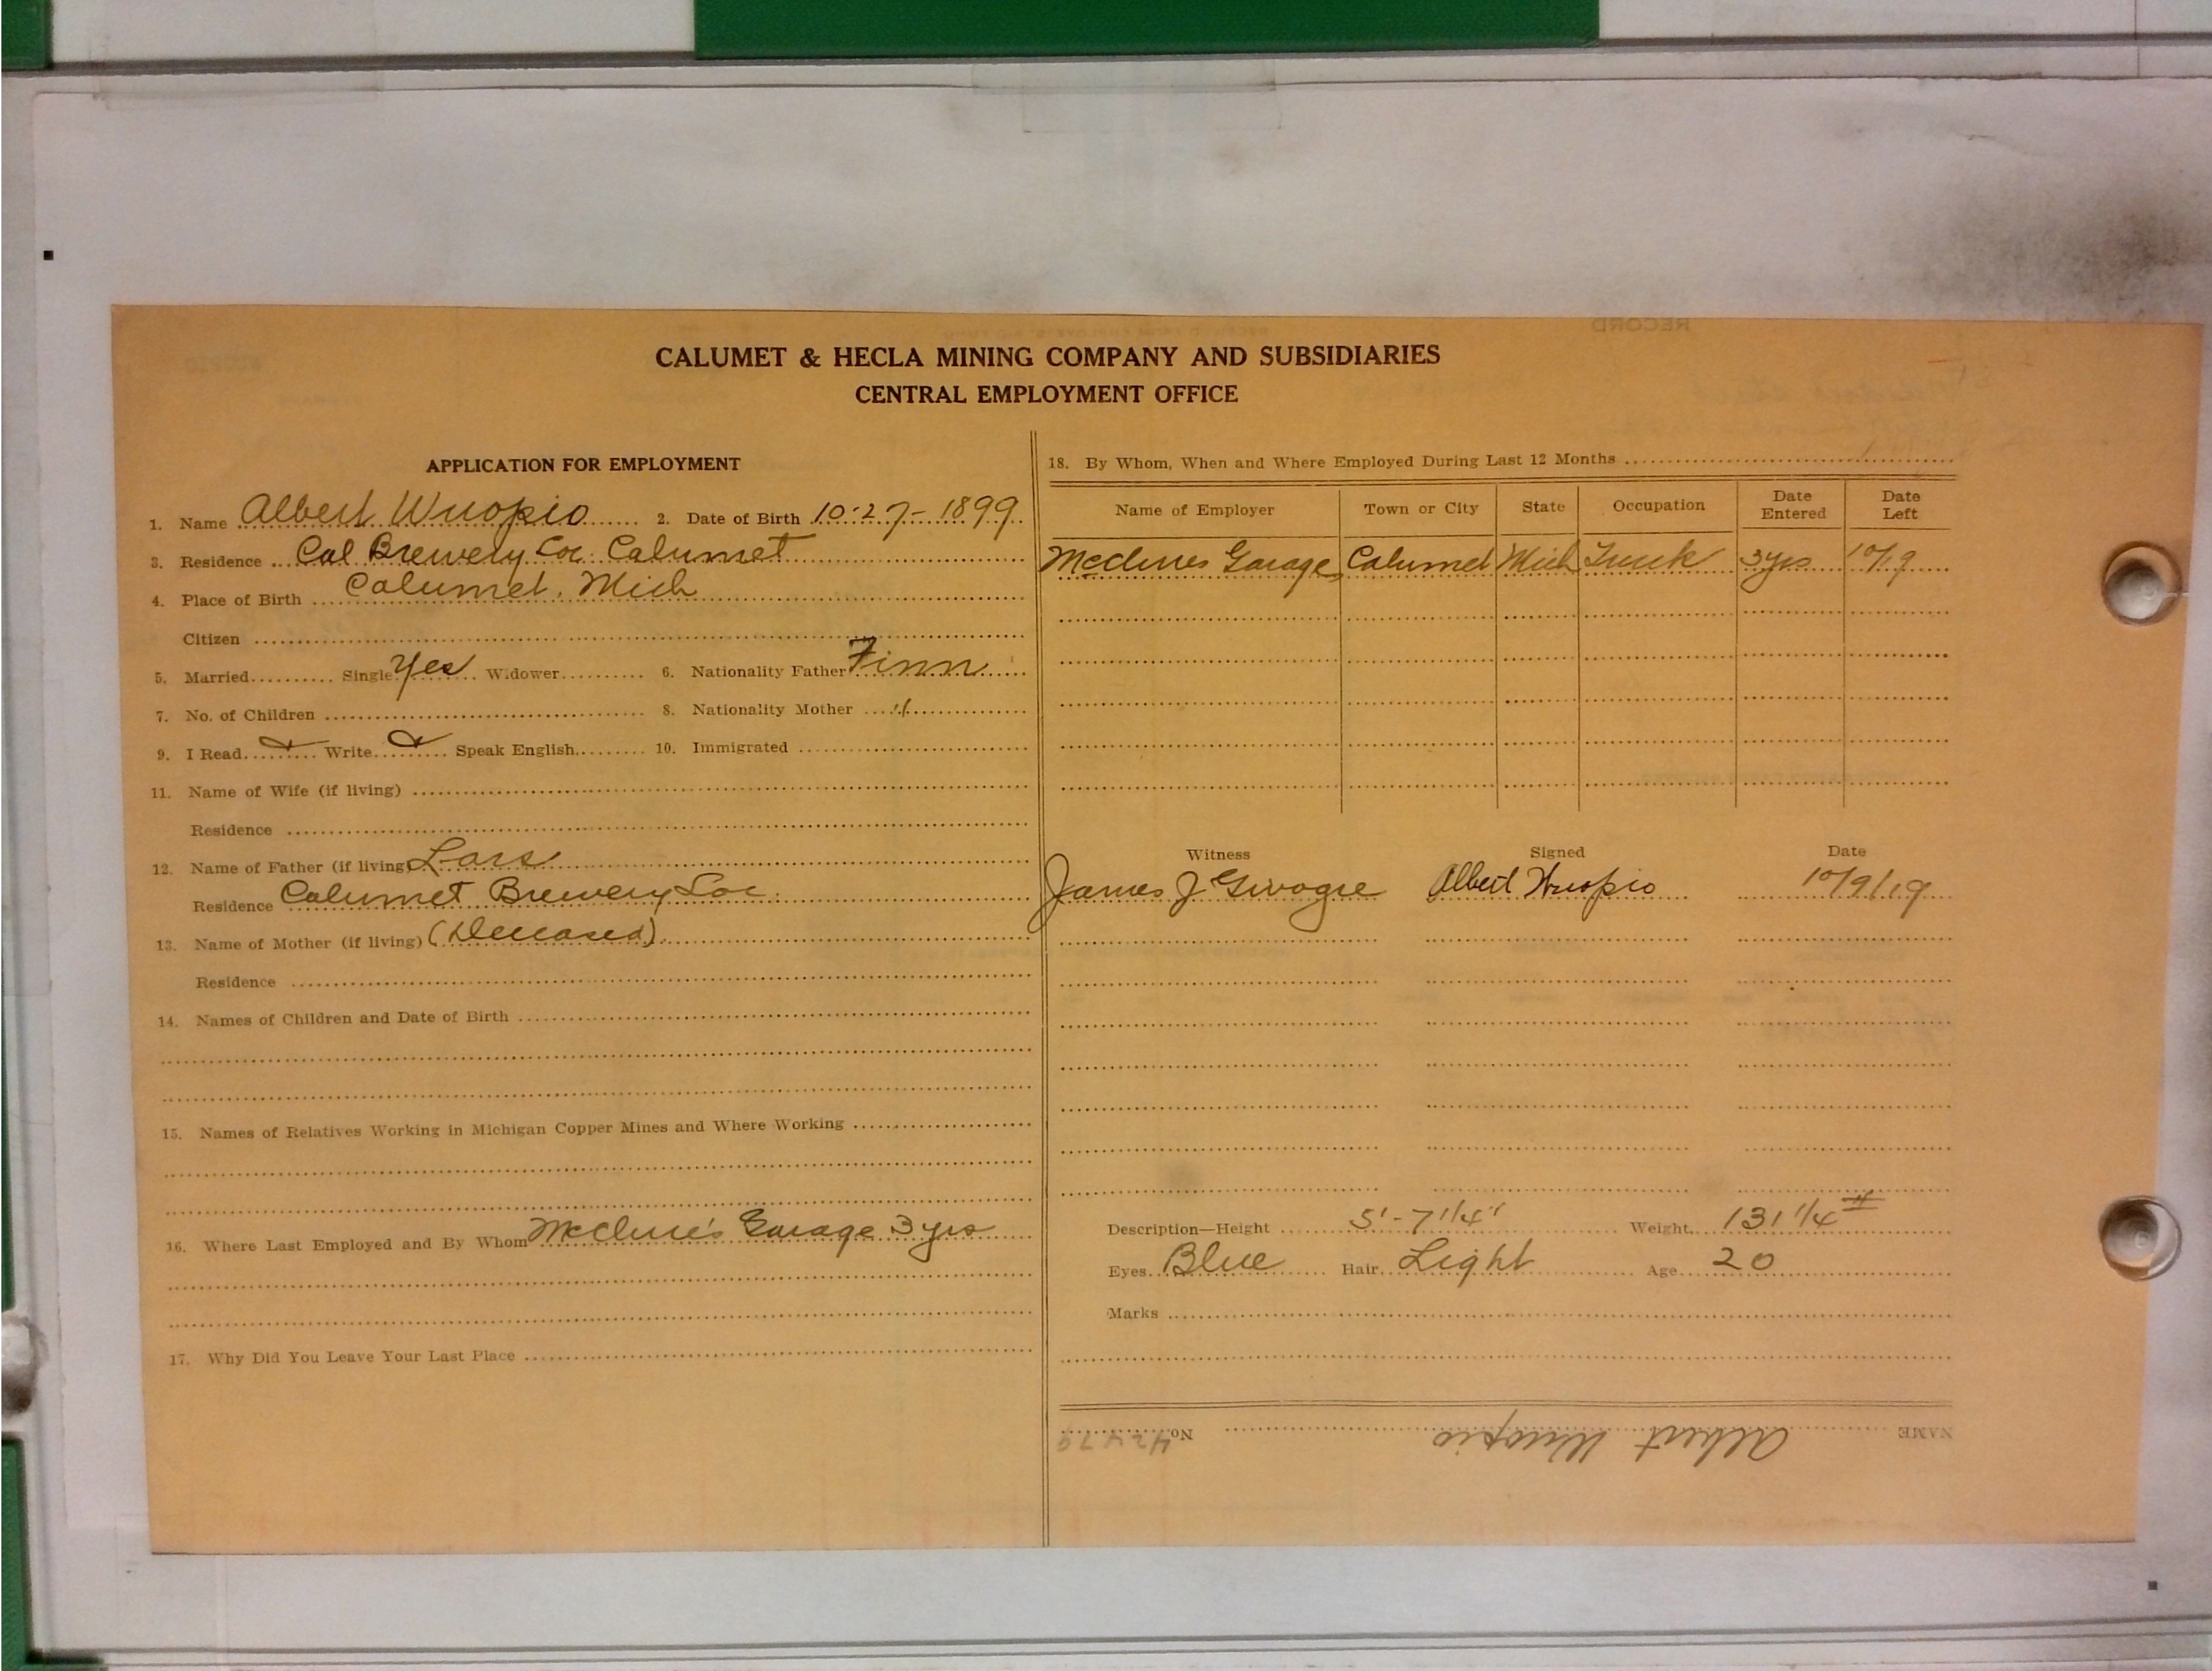 CALUMET & HECLA MINING COMPANY AND SUBSIDIARIES
CENTRAL EMPLOYMENT OFFICE
APPLICATION FOR EMPLOYMENT
1. Name Albert Wuopio 2. Date of Birth 10-27-1899
3. Residence Cal Brewery Loc. Calumet
4. Place of Birth Calumet, Mich
Citizen
5. Married Single Yes Widower 6. Nationality Father Finn
7. No. of Children 8. Nationality Mother "
9. I Read Write Speak English 10. Immigrated
11. Name of Wife (if living)
Residence
12. Name of Father (if living) Lars
Residence Calumet Brewery Loc.
13. Name of Mother (if living) (Deceased)
Residence
14. Names of Children and Date of Birth
15. Names of Relatives Working in Michigan Copper Mines and Where Working
16. Where Last Employed and By Whom McClure's Garage 3 yrs
17. Why Did You Leave Your Last Place
18. By Whom, When and Where Employed During Last 12 Months
Name of Employer Town or City State Occupation Date Entered Date Left
McClures Garage Calumet Mich Truck 3 yrs 10/19
Witness Signed Date
James J Albert Wuopio 10/9/19
Description—Height 5'-7 1/4" Weight 131 1/4 #
Eyes Blue Hair Light Age 20
Marks
NAME Albert Wuopio No.
RECORD